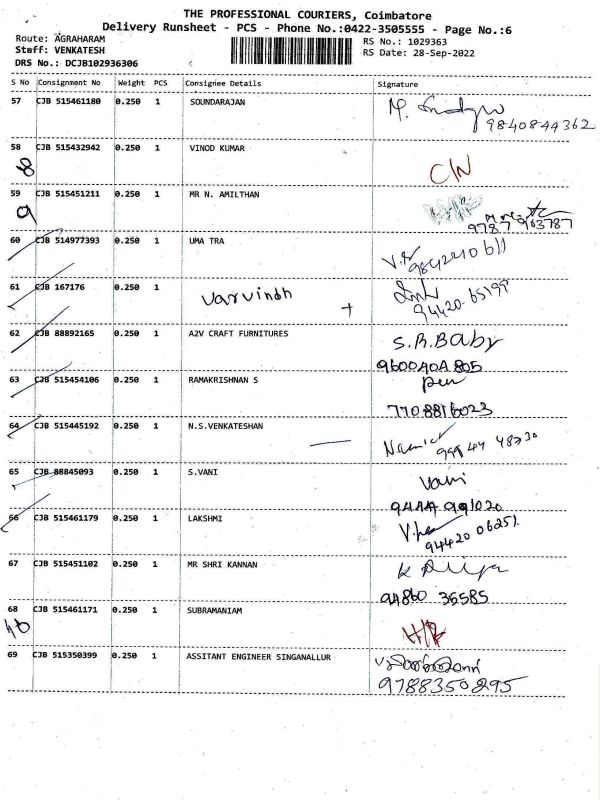 THE PROFESSIONAL COURIERS, Coimbatore
Delivery Runsheet - PCS - Phone No.:0422-3505555 - Page No.:6
Route: AGRAHARAM
Staff: VENKATESH
DRS No.: DCJB102936306
RS No.: 1029363
RS Date: 28-Sep-2022
S No Consignment No Weight PCS Consignee Details Signature
57 CJB 515461180 0.250 1 SOUNDARAJAN
9840844362
58 CJB 515432942 0.250 1 VINOD KUMAR
8
59 CJB 515451211 0.250 1 MR N. AMILTHAN
9
9787 963787
60 CJB 514977393 0.250 1 UMA TRA
61 CJB 167176 0.250 1 Varvindh +
94420-65199
62 CJB 88892165 0.250 1 A2V CRAFT FURNITURES S.R.Baby
63 CJB 515454106 0.250 1 RAMAKRISHNAN S
7708816023
64 CJB 515445192 0.250 1 N.S.VENKATESHAN
65 CJB 88845093 0.250 1 S.VANI Vani
66 CJB 515461179 0.250 1 LAKSHMI
94420 06251
67 CJB 515451102 0.250 1 MR SHRI KANNAN
94860 36585
68 CJB 515461171 0.250 1 SUBRAMANIAM
10
69 CJB 515350399 0.250 1 ASSITANT ENGINEER SINGANALLUR
9788350295